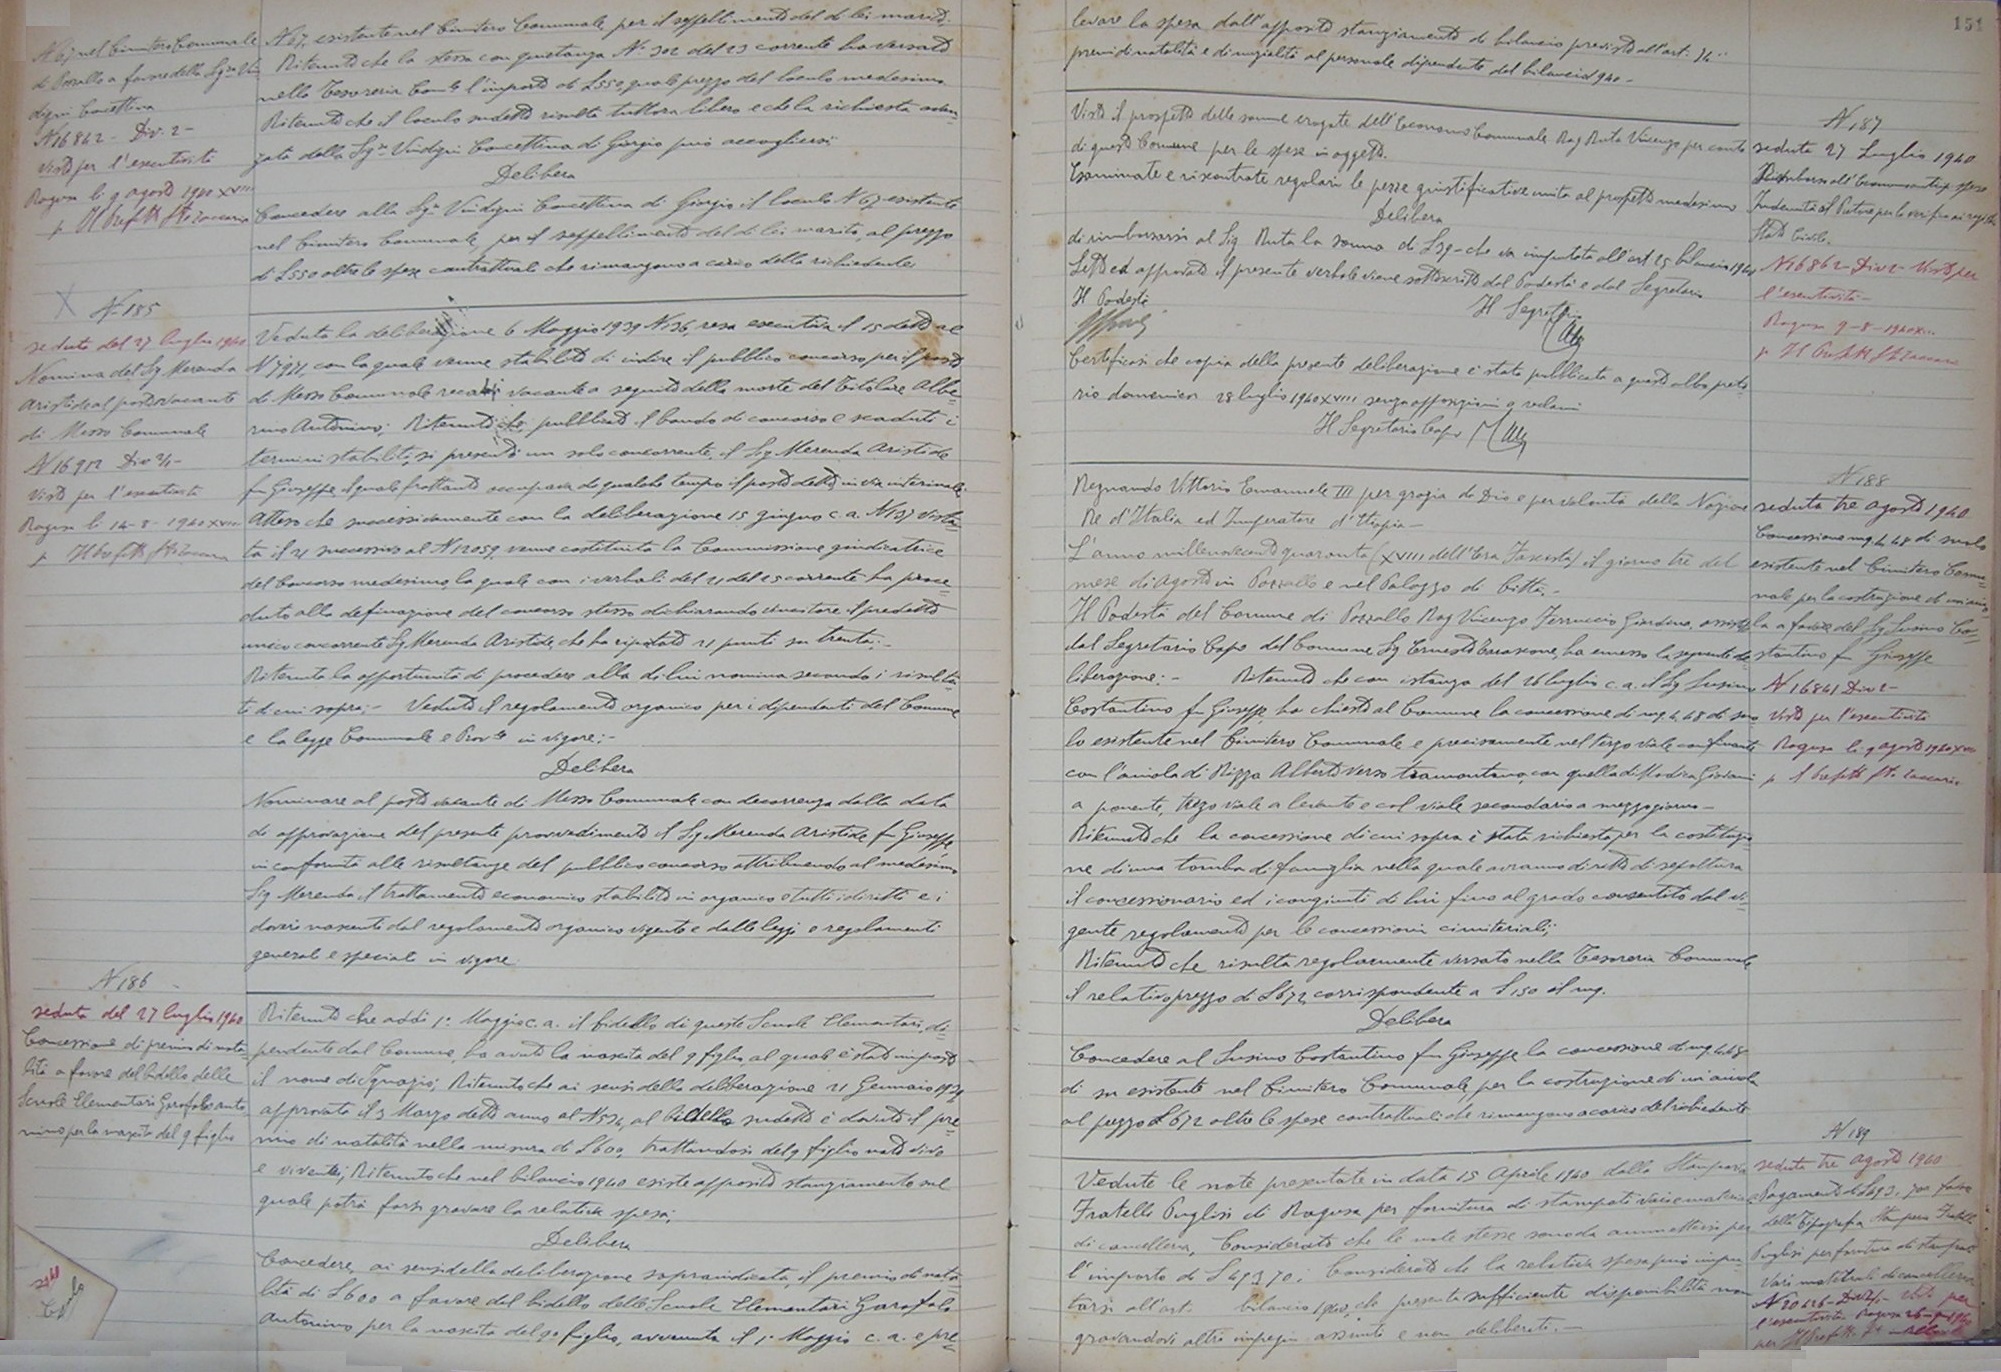 N 67 nel Cimitero Comunale
di Pozzallo a favore della Sig.ra Vin
digni Concettina
N 16842 - Div. 2 -
Visto per l'esecutività
Ragusa li 9 agosto 1940 XVIII
p Il Prefetto f.to Zaccaria
N. 67, esistente nel Cimitero Comunale per il seppellimento del di lei marito.
Ritenuto che la stessa con quietanza N. 302 del 23 corrente ha versato
nella Tesoreria Com.le l'importo di L 550, quale prezzo del loculo medesimo
Ritenuto che il loculo sudetto risulta tuttora libero e che la richiesta avan=
zata dalla Sig.ra Vindigni Concettina di Giorgio può accogliersi
Delibera
Concedere alla Sig.ra Vindigni Concettina di Giorgio il loculo N 67 esistente
nel Cimitero Comunale, per il seppellimento del di lei marito, al prezzo
di L 550 oltre le spese contrattuali che rimangono a carico della richiedente.
X N. 185
seduta del 27 luglio 1940
Nomina del Sig Merenda
Aristide al posto vacante
di Messo Comunale
N 16912 Div 2/1 -
Visto per l'esecutività
Ragusa li 14 - 8 - 1940 XVIII
p Il Prefetto f.to Zaccaria
Veduta la deliberazione 6 Maggio 1939 N 136, resa esecutiva il 15 detto al
N 7971, con la quale venne stabilito di indire il pubblico concorso per il posto
di Messo Comunale resosi vacante a seguito della morte del titolare Albe=
rino Antonino; Ritenuto che, pubblicato il bando di concorso e scaduti i
termini stabiliti, si presentò un solo concorrente, il Sig Merenda Aristide
fu Giuseppe il quale frattanto occupava da qualche tempo il posto detto in via interinale.
Atteso che successivamente con la deliberazione 15 giugno c.a. N 137 vista=
ta il 21 successivo al N 12059, venne costituita la Commissione giudicatrice
del Concorso medesimo, la quale con i verbali del 21 del 25 corrente ha proce=
duto alla definizione del concorso stesso dichiarando vincitore il predetto
unico concorrente Sig Merenda Aristide, che ha riportato 21 punti su trenta; -
Ritenuta la opportunità di procedere alla di lui nomina secondo i risulta=
ti di cui sopra; - Veduto il regolamento organico per i dipendenti del Comune
e la legge Comunale e Prov.le in vigore; -
Delibera
Nominare al posto vacante di Messo Comunale con decorrenza dalla data
di approvazione del presente provvedimento il Sig Merenda Aristide fu Giuseppe
in conformità alle risultanze del pubblico concorso attribuendo al medesimo
Sig Merenda il trattamento economico stabilito in organico e tutti i diritti e i
doveri nascenti dal regolamento organico vigente e dalle leggi e regolamenti
generali e speciali in vigore.
N 186
seduta del 27 luglio 1940
Concessione di premio di nata
lità a favore del bidello delle
Scuole Elementari Garofalo Anto
nino per la nascita del 9 figlio
Ritenuto che addì 1° Maggio c.a. il bidello di queste Scuole Elementari, di=
pendente dal Comune, ha avuto la nascita del 9 figlio al quale è stato imposto
il nome di Ignazio; Ritenuto che ai sensi della deliberazione 21 Gennaio 1939
approvata il 3 Marzo detto anno al N 534, al bidello sudetto è dovuto il pre=
mio di natalità nella misura di L 600, trattandosi del 9 figlio nato vivo
e vivente; Ritenuto che nel bilancio 1940 esiste apposito stanziamento sul
quale potrà farsi gravare la relativa spesa;
Delibera
Concedere, ai sensi della deliberazione sopraindicata, il premio di nata
lità di L 600 a favore del bidello delle Scuole Elementari Garofalo
Antonino per la nascita del 9° figlio, avvenuta il 1° Maggio c.a. e pre=
151
levare la spesa dall'apposito stanziamento di bilancio previsto all'art. 74:
premi di natalità e di nuzialità al personale dipendente del bilancio 1940 -
N 187
seduta 27 Luglio 1940
Rimborso all'Economo spese
Indennità al Pretore per la verifica ai registri
Stato Civile.
N 16862 - Div 2 - Visto per
l'esecutività -
Ragusa 9 - 8 - 1940 XVIII
p Il Prefetto f.to Zaccaria
Visto il prospetto delle somme erogate dell'Economo Comunale Rag Ruta Vincenzo per conto
di questo Comune per le spese in oggetto.
Esaminate e riscontrate regolari le pezze giustificative unite al prospetto medesimo
Delibera
di rimborsarsi al Sig Ruta la somma di L 39 - che va imputata all'art 25 bilancio 1940
Letto ed approvato il presente verbale viene sottoscritto dal Podestà e dal Segretario
Il Podestà Il Segretario
Certificasi che copia della presente deliberazione è stata pubblicata a questo albo preto
rio domenica 28 luglio 1940 XVIII senza opposizioni o reclami
Il Segretario Capo
N 188
seduta tre agosto 1940
Concessione mq. 4,48 di suolo
esistente nel Cimitero Comu=
nale per la costruzione di un'aiuo=
la a favore del Sig Susino Co=
stantino fu Giuseppe
N 16841 Div 2 -
Visto per l'esecutività
Ragusa li 9 agosto 1940 XVIII
p Il Prefetto f.to Zaccaria
Regnando Vittorio Emanuele III per grazia di Dio e per volontà della Nazione
Re d'Italia ed Imperatore d'Etiopia -
L'anno millenovecento quaranta (XVIII dell'Era Fascista) il giorno tre del
mese di Agosto in Pozzallo e nel Palazzo di Città. -
Il Podestà del Comune di Pozzallo Rag Vincenzo Ferruccio Giardina, assistito
dal Segretario Capo del Comune Sig Ernesto Tarascone, ha emesso la seguente de
liberazione: - Ritenuto che con istanza del 26 luglio c.a. il Sig Susino
Costantino fu Giuseppe, ha chiesto al Comune la concessione di mq. 4,48 di suo
lo esistente nel Cimitero Comunale e precisamente nel terzo viale confinante
con l'aiuola di Rizza Alberto verso tramontana, con quella di Modica Giovanni
a ponente, terzo viale a levante e col viale secondario a mezzogiorno -
Ritenuto che la concessione di cui sopra è stata richiesta per la costruzio
ne di una tomba di famiglia nella quale avranno diritto di sepoltura
il concessionario ed i congiunti di lui fino al grado consentito dal vi=
gente regolamento per le concessioni cimiteriali;
Ritenuto che risulta regolarmente versato nella Tesoreria Comunale
il relativo prezzo di L 672 corrispondente a L 150 il mq.
Delibera
Concedere al Susino Costantino fu Giuseppe la concessione di mq. 4,48
di su esistente nel Cimitero Comunale, per la costruzione di un'aiuola
al prezzo L 672 oltre le spese contrattuali che rimangono a carico del richiedente
N 189
seduta tre agosto 1940
Pagamento di L 493,70 a favore
della Tipografia Stamperia Fratelli
Puglisi per fornitura di stampati
vari materiali di cancelleria
N 20626 - Div 2/1 - Visto per
l'esecutività Ragusa
per Il Prefetto f.to
Vedute le note presentate in data 15 Aprile 1940 dalla Stamperia
Fratelli Puglisi di Ragusa per fornitura di stampati vari e materiale
di cancelleria, Considerato che le note stesse sono da ammettersi per
l'importo di L 493,70; Considerato che la relativa spesa può impu=
tarsi all'art. bilancio 1940, che presenta sufficiente disponibilità non
gravandovi altri impegni assunti e non deliberati. -